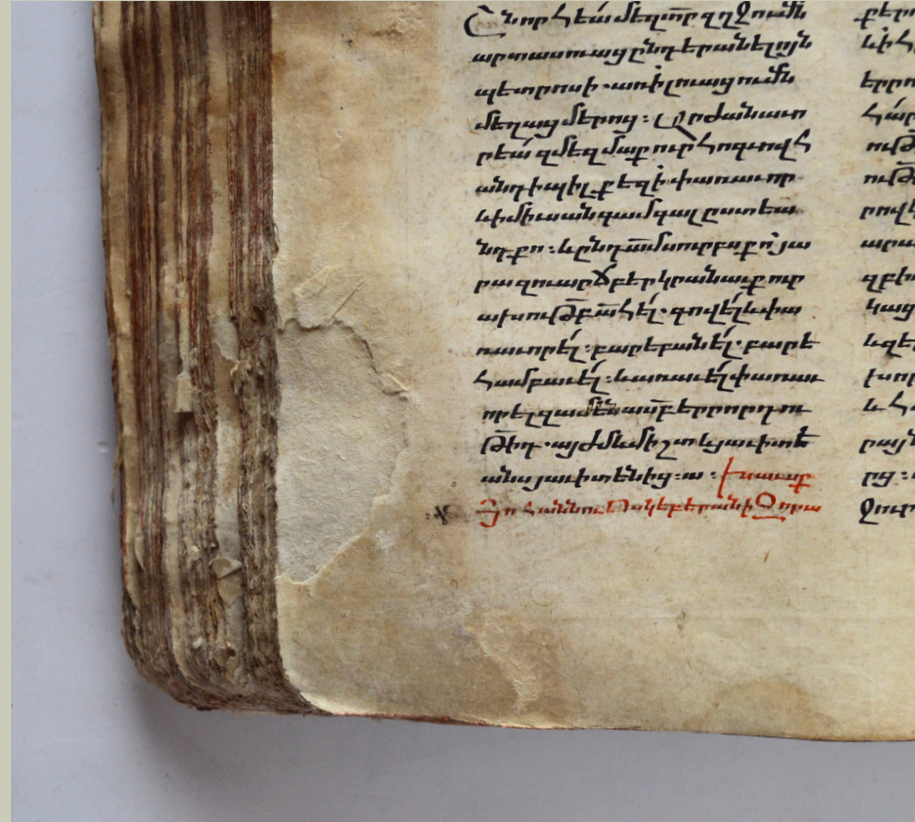 Շնորհեա մեզ տր զղջումն
արտասուաց ընդ երանելոյն
պետրոսի. առ ի լուացումն
մեղաց մերոց: Արժանաւո
րեա զմեզ մաքուր հոգւով հ
անդիպիլ քեզ ի փառաւոր
և ի միւսանգամ գալըստեա
նդ քո: և ընդ ամ սուրբս քո յա
րագուարճ բերկրանաւք ուր
ախութբ ահել. գովել և փա
ռաւորել: բարեբանել. բարե
համբաւել: և առաւել փառաւ
որել զամէնասբ երրորդու
թիդ. այժմ և միշտ և յաւիտե
անս յաւիտենից: ա: Խոսք
Յոհաննու Ոսկեբերանի Ջորս
քեր
և ի հ
երրո
հար
ութ
ութ
րովե
արա
զբի
կաց
և զե
խոր
և հ
րայն
րց:
Ջուր